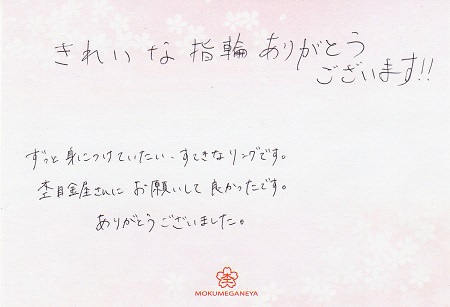 きれいな指輪ありがとう
ございます!!
ずっと身につけていたい、すてきなリングです。
杢目金屋さんにお願いして良かったです。
ありがとうございました。
杢
MOKUMEGANEYA